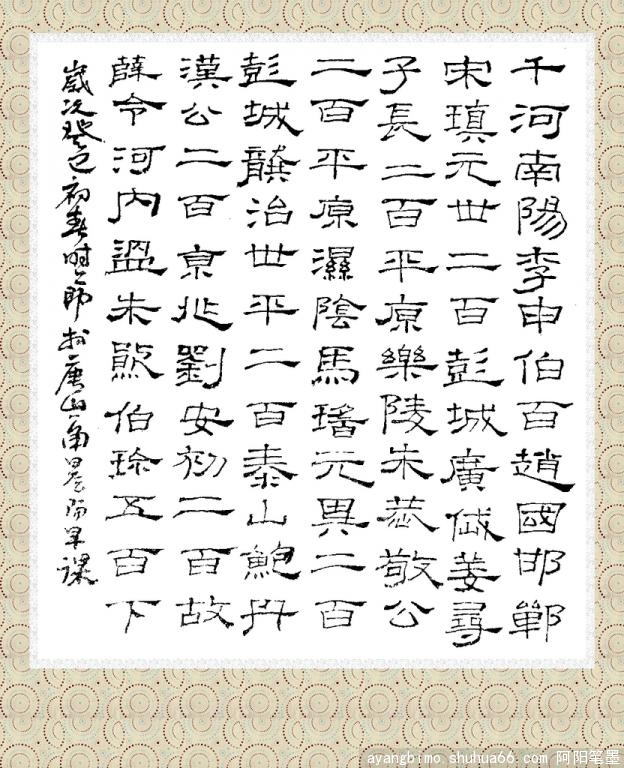 千河南陽李申伯百趙國邯鄲
宋瑱元世二百彭城廣戚姜尋
子長二百平原樂陵朱恭敬公
二百平原濕陰馬瑤元異二百
彭城龔治世平二百泰山鮑丹
漢公二百京兆劉安初二百故
薛令河内溫朱熊伯珍五百下
歲次癸巳初春时節於唐山陽早課
ayangbimo.shuhua66.com 阿阳笔墨